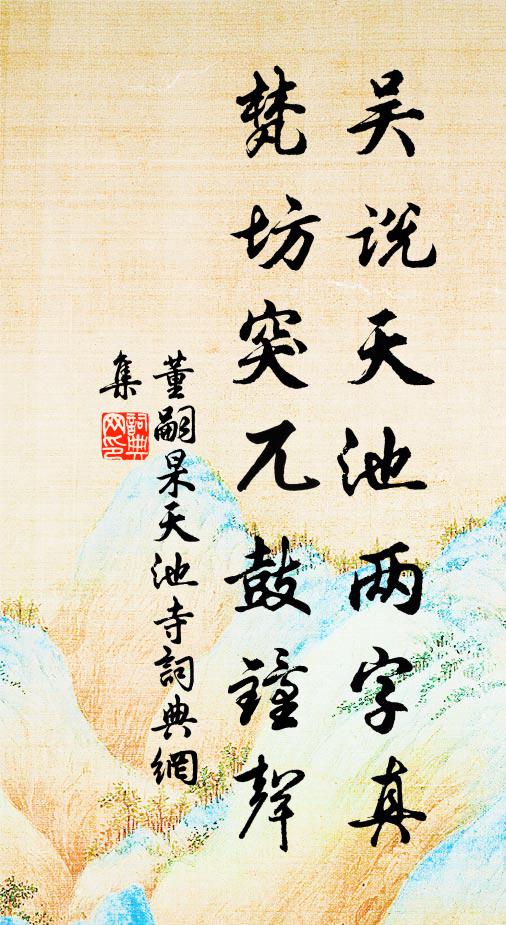 吴说天池两字真
梵坊突兀鼓鐘聲
董嗣杲天池寺詞典網
集
詞典
网印